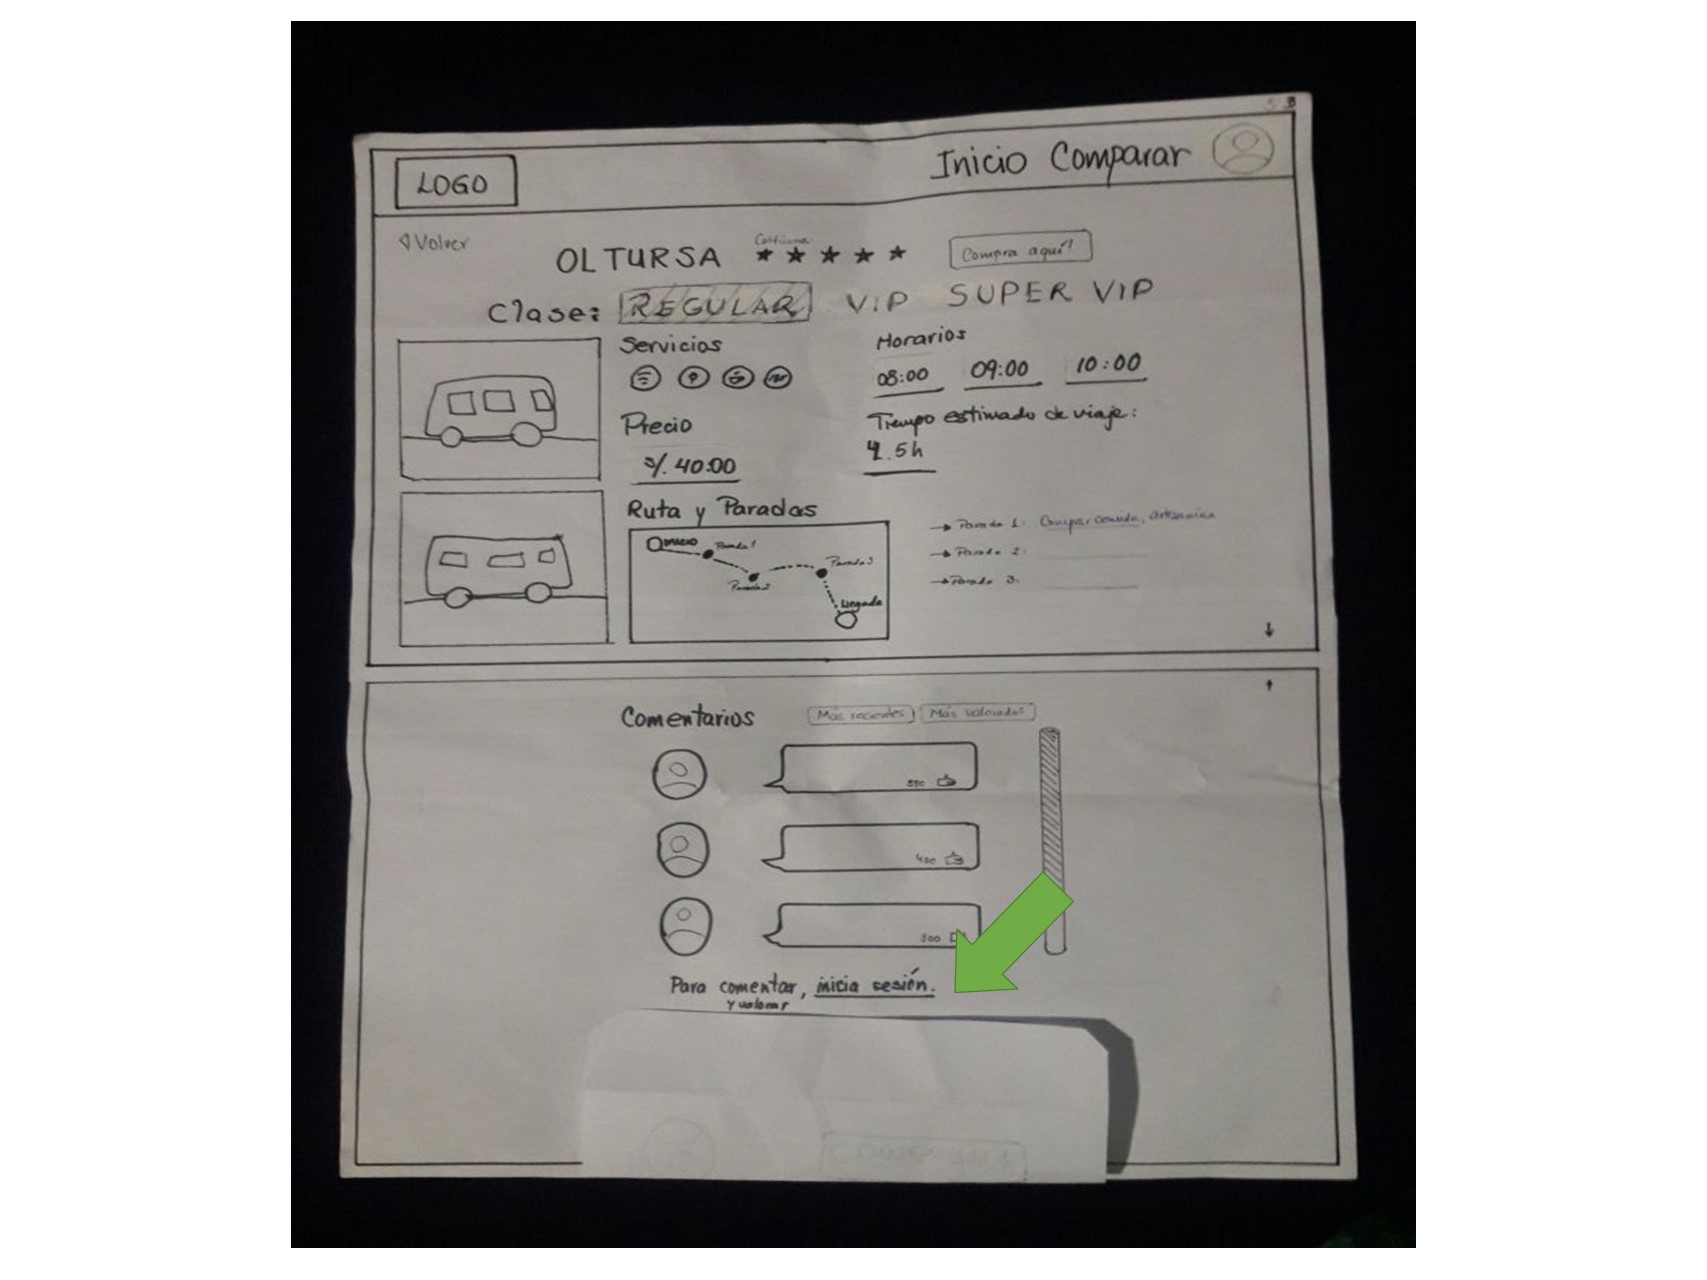 LOGO
Inicio Comparar
Volver
OLTURSA
Compra aquí!
Clase: REGULAR VIP SUPER VIP
Servicios
Horarios
08:00 09:00 10:00
Precio
S/. 40.00
Tiempo estimado de viaje:
4.5h
Ruta y Paradas
inicio
Parada 1
Parada 2
Parada 3
llegada
Parada 1: Comprar comida, artesanica
Parada 2:
Parada 3:
Comentarios
Más recientes
Más valorados
400
300
Para comentar, inicia sesión.
y valorar